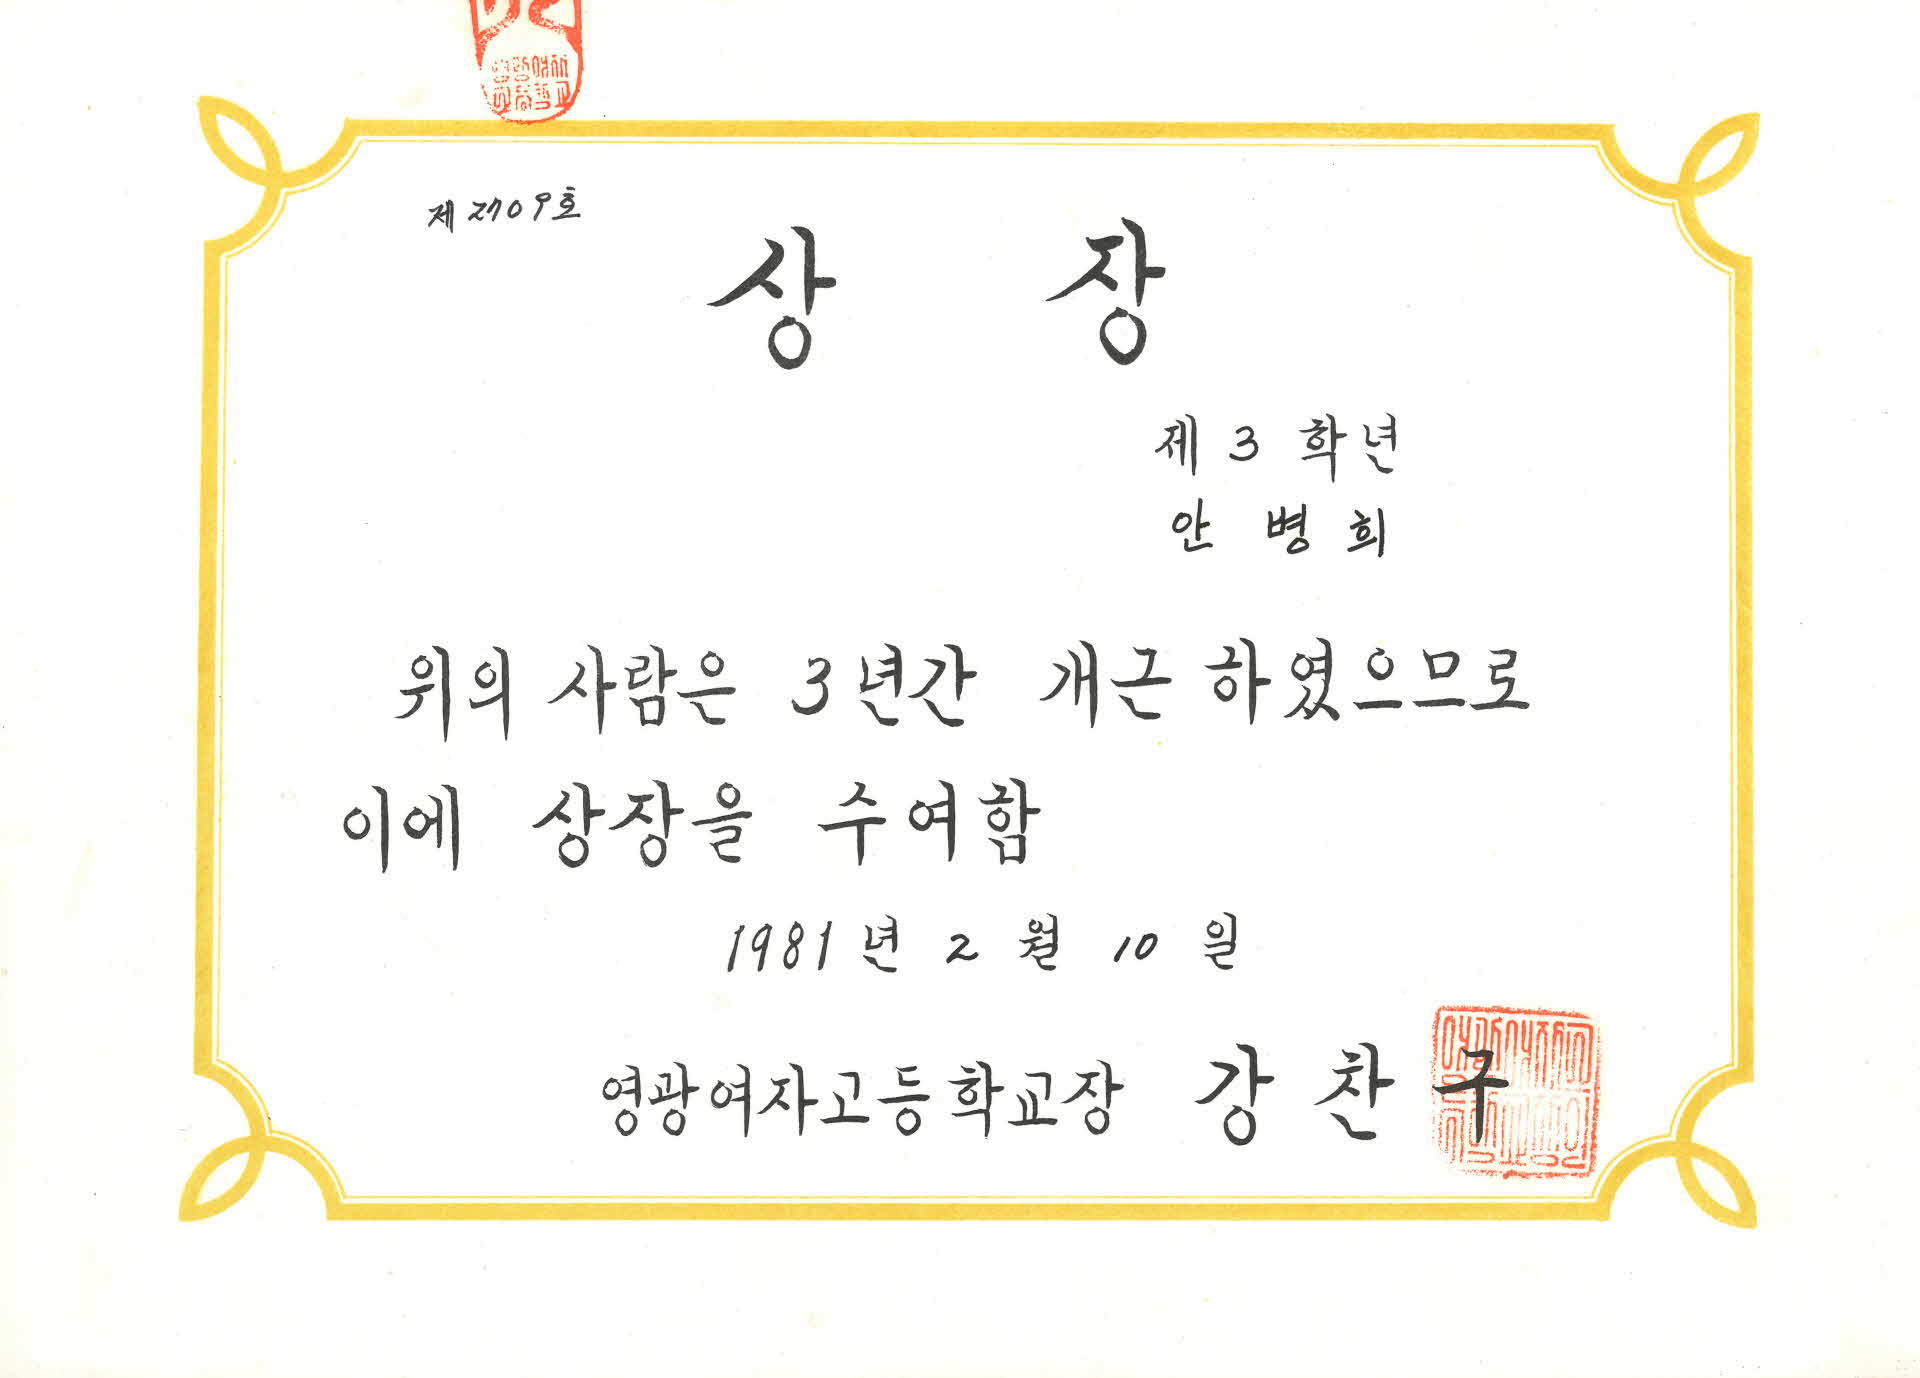 제2709호
상 장
제 3 학년
안 병 희
위의 사람은 3년간 개근 하였으므로
이에 상장을 수여함
1981년 2 월 10 일
영광여자고등학교장 강 찬 구